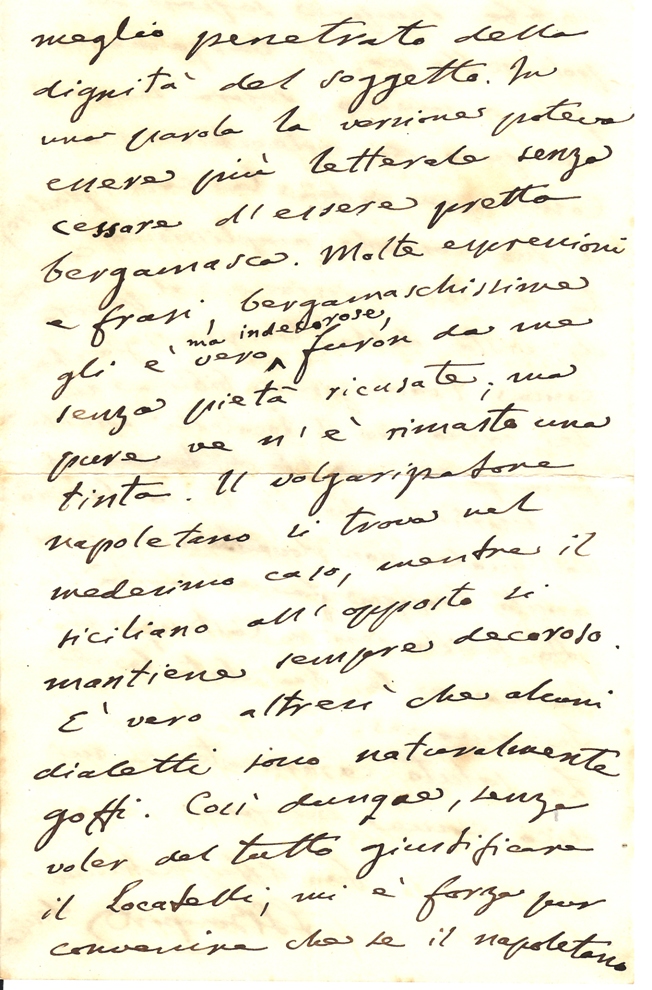 meglio penetrato della
dignità del soggetto. In
una parola la versione poteva
essere più letterale senza
cessare d'essere pretta
bergamasca. Molte espressioni
e frasi, bergamaschissime
ma indecorose,
gli è vero ^ furon da me
senza pietà ricusate; ma
pure ve n'è rimasta una
tinta. Il volgarizzatore
napoletano si trova nel
medesimo caso, mentre il
siciliano all'opposto si
mantiene sempre decoroso.
E' vero altresì che alcuni
dialetti sono naturalmente
goffi. Così dunque, senza
voler del tutto giustificare
il Locatelli, mi è forza pur
convenire che se il napoletano